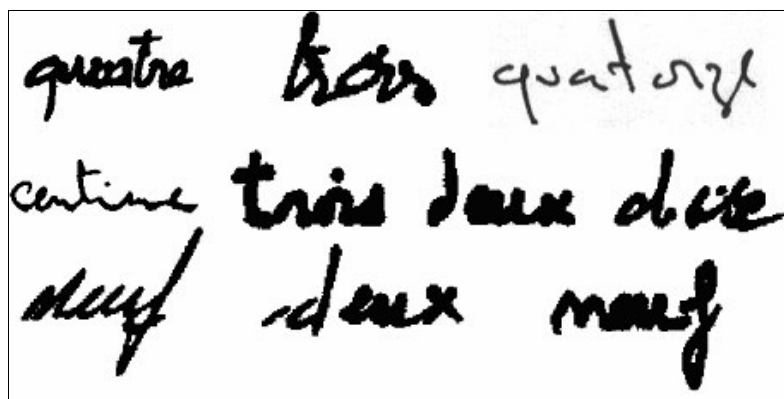 quatre trois quatorze
centime trois deux
neuf deux neuf